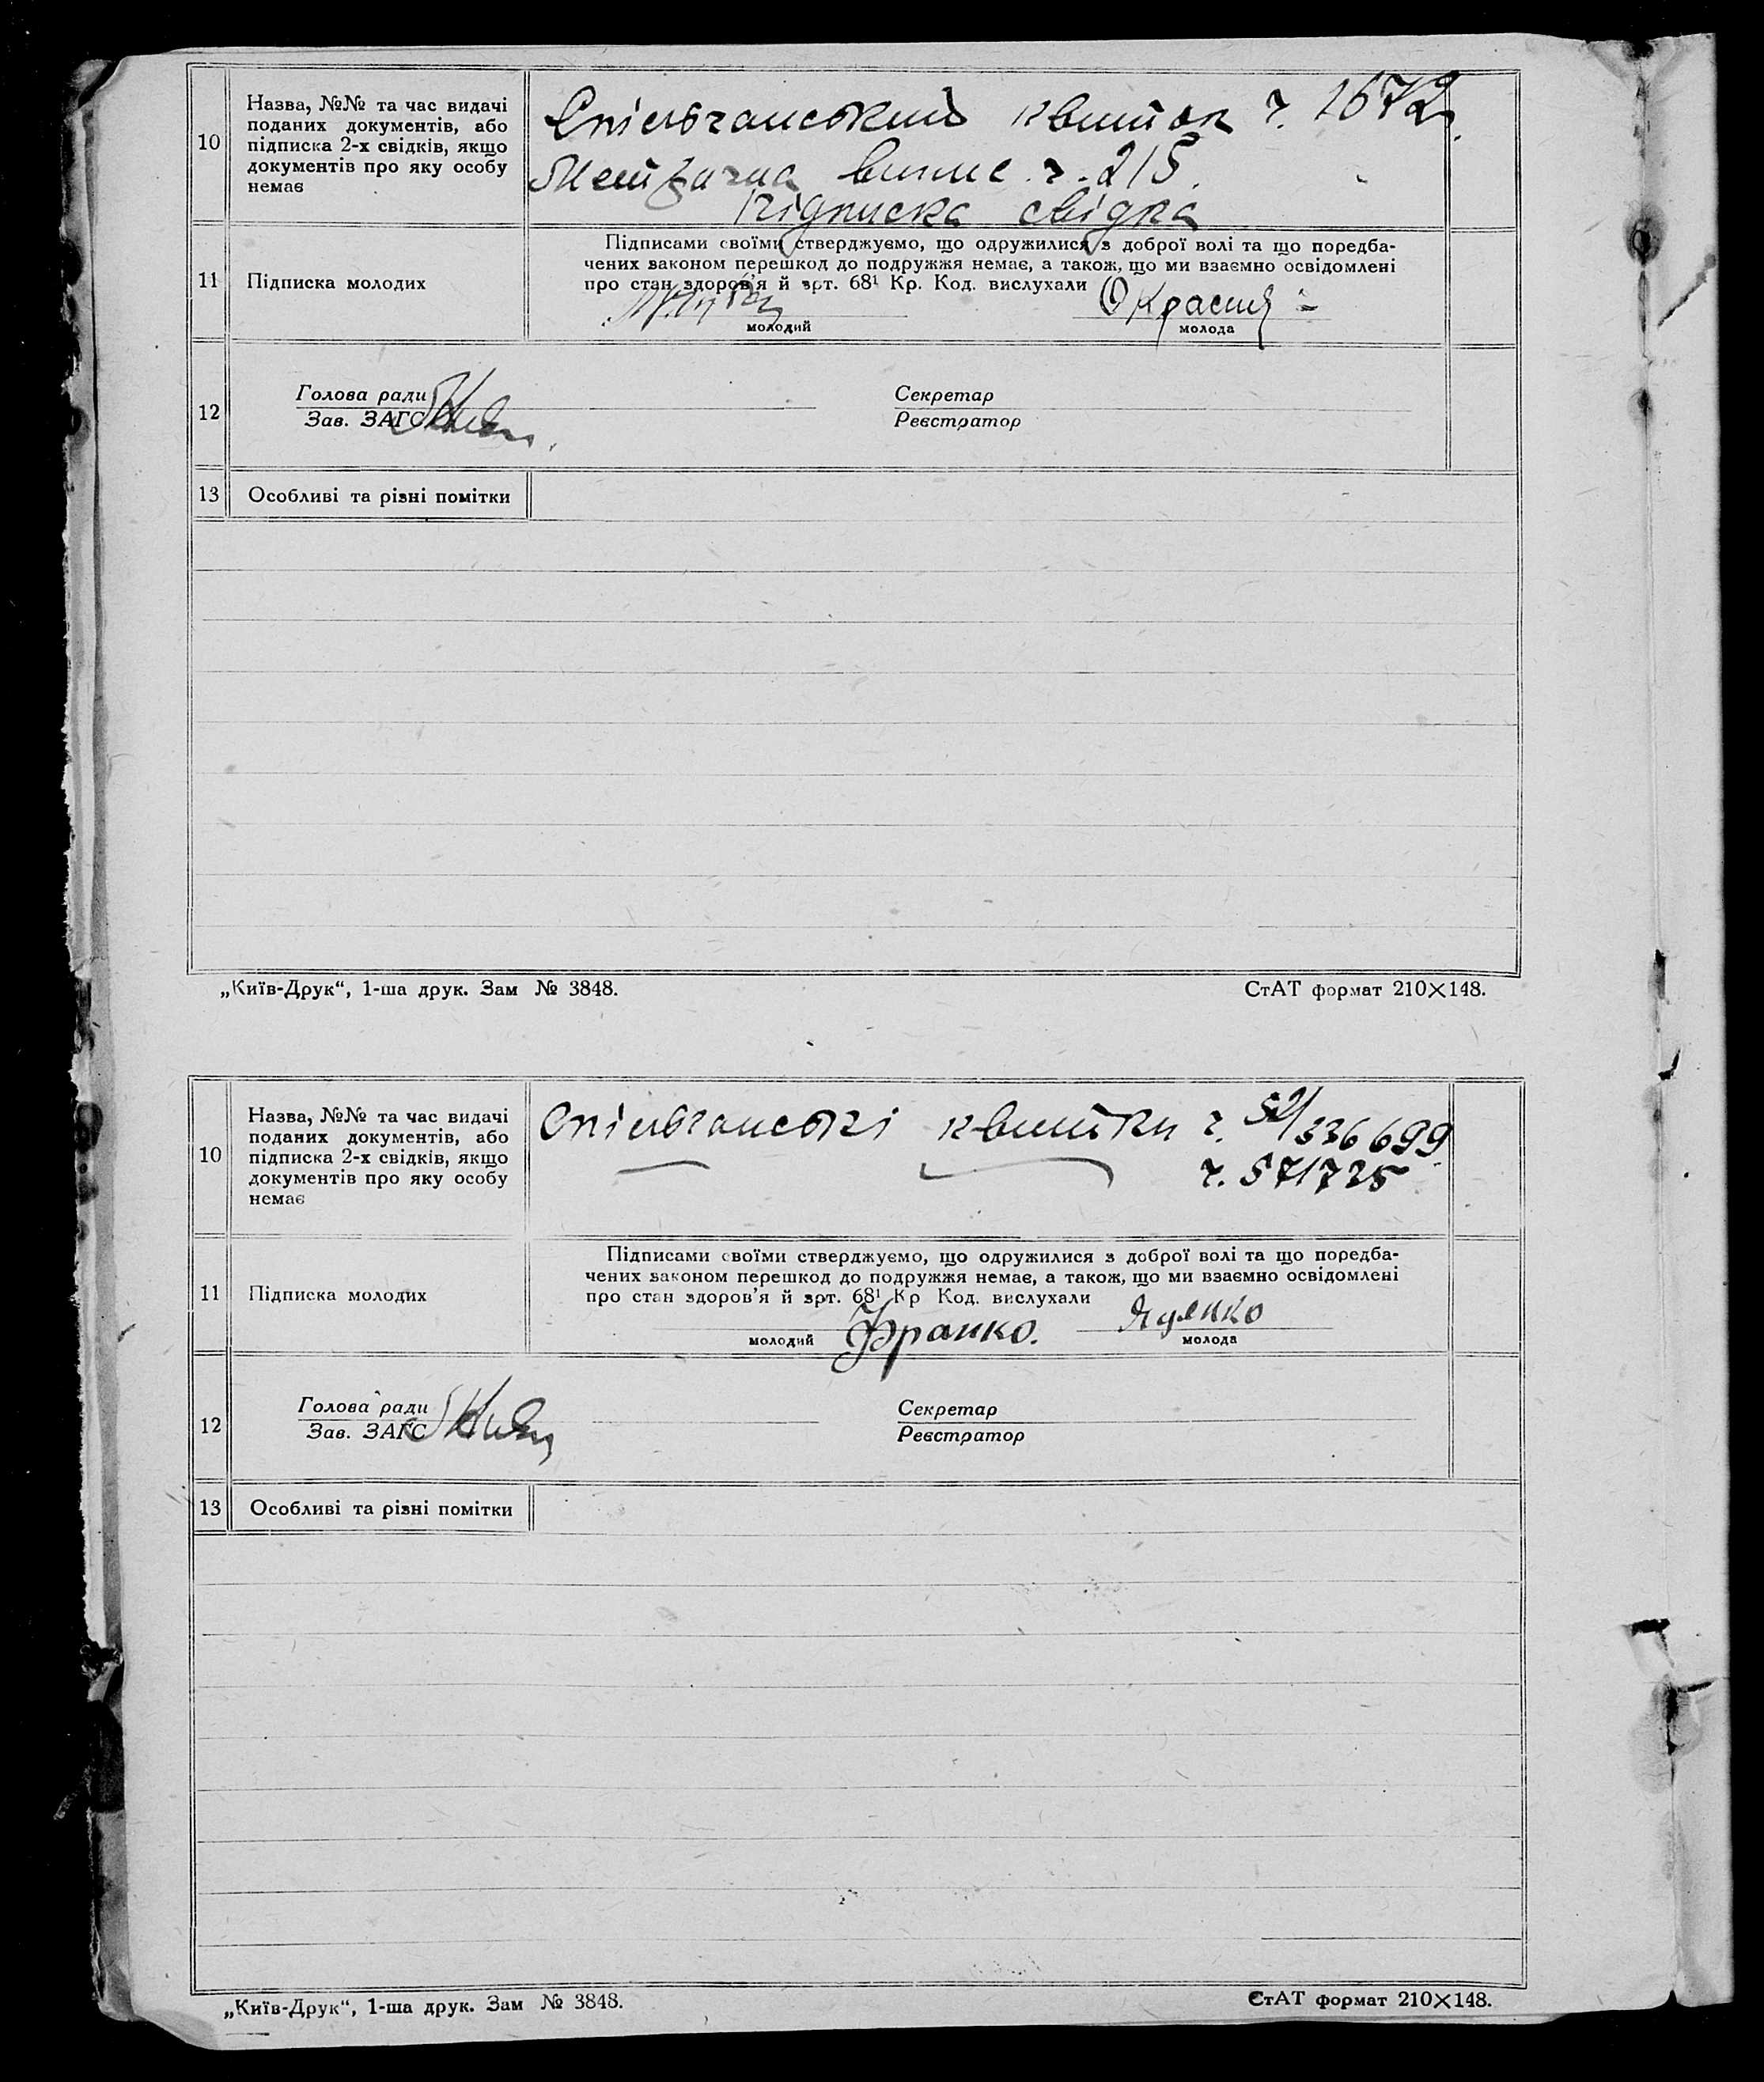 10
Назва, №№ та час видачі
поданих документів, або
підписка 2-х свідків, якщо
документів про яку особу
немає
Спільчанський квиток ч. 1672
Метрична випис ч. 215.
підписка свідка
11
Підписка молодих
Підписами своїми стверджуємо, що одружилися з доброї волі та що поредба-
чених законом перешкод до подружжя немає, а також, що ми взаємно освідомлені
про стан здоров'я й арт. 68¹ Кр. Код. вислухали
молодий
молода
12
Голова ради
Зав. ЗАГС
Секретар
Реєстратор
13
Особливі та різні помітки
„Київ-Друк“, 1-ша друк. Зам № 3848.
СтАТ формат 210×148.
10
Назва, №№ та час видачі
поданих документів, або
підписка 2-х свідків, якщо
документів про яку особу
немає
Спільчанські квитки ч. 52/336699
ч. 571725
11
Підписка молодих
Підписами своїми стверджуємо, що одружилися з доброї волі та що поредба-
чених законом перешкод до подружжя немає, а також, що ми взаємно освідомлені
про стан здоров'я й арт. 68¹ Кр Код. вислухали
молодий Франко.
молода
12
Голова ради
Зав. ЗАГС
Секретар
Реєстратор
13
Особливі та різні помітки
„Київ-Друк“, 1-ша друк. Зам № 3848.
СтАТ формат 210×148.